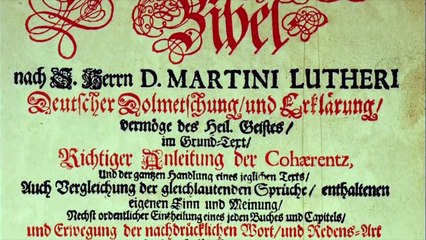 Bibel
nach S. Herrn D. MARTINI LUTHERI
Deutscher Dolmetschung/und Erklärung/
vermöge des Heil. Geistes/
im Grund-Text/
Richtiger Anleitung der Cohærentz,
und der gantzen Handlung eines jeglichen Texts/
Auch Vergleichung der gleichlautenden Sprüche/ enthaltenen
eigenen Sinn und Meinung/
Nechst ordentlicher Eintheilung eines jeden Buches und Capitels/
und Erwegung der nachdrücklichen Wort/und Redens-Art